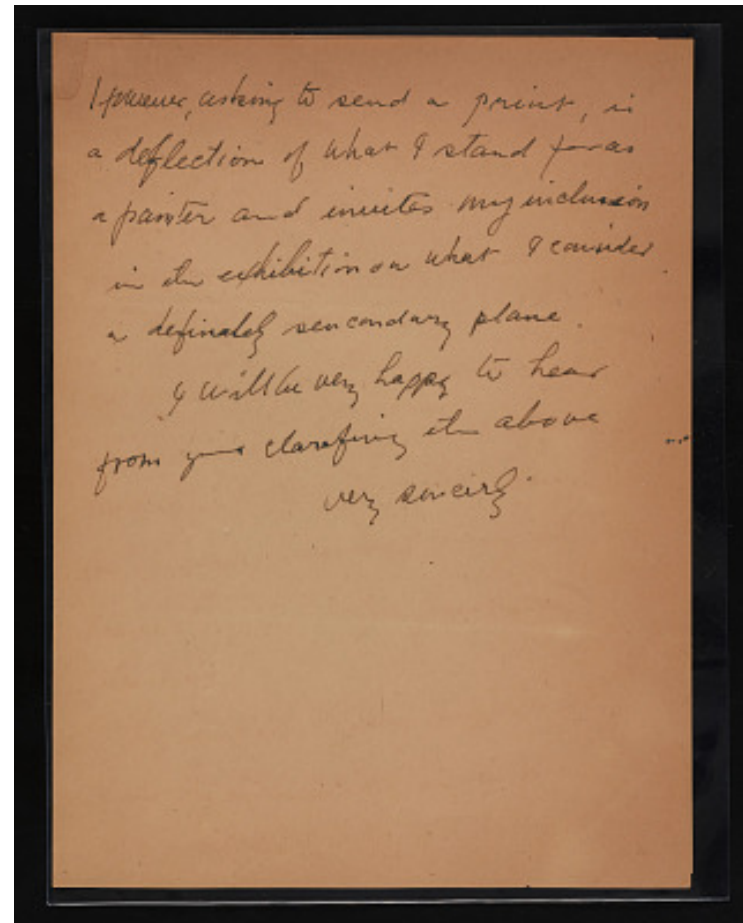 However, asking to send a print, is
a deflection of what I stand for as
a painter and invites my inclusion
in the exhibition on what I consider
a definately sencondary plane.
I will be very happy to hear
from you clarafing the above
very sincerly.